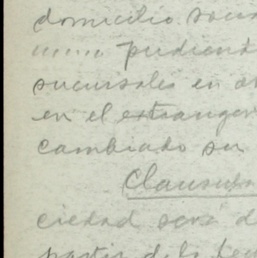 domicilio soci
pudiend
sucursales en o
en el extranger
cambiado su
Clausu
ciedad será d
partir de la fec